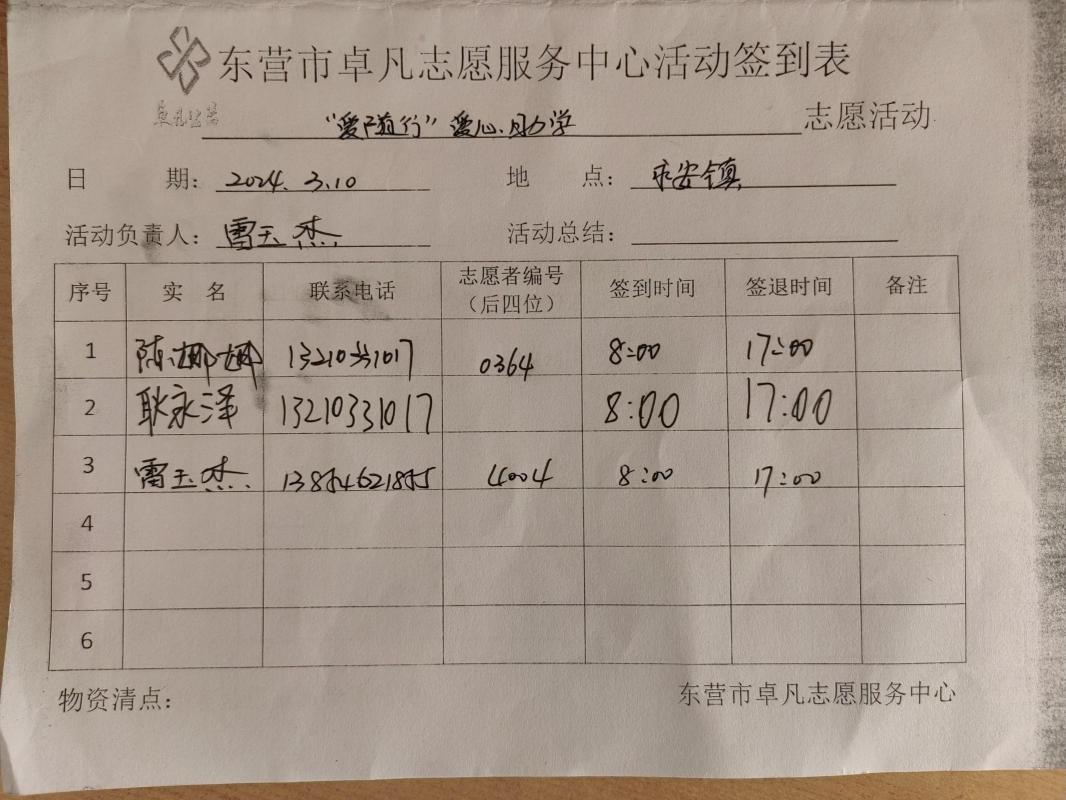 东营市卓凡志愿服务中心活动签到表
卓凡公益
“爱随行”爱心助学 志愿活动
日 期：2024.3.10 地 点：永安镇
活动负责人：雷玉杰 活动总结：
序号 实 名 联系电话 志愿者编号（后四位） 签到时间 签退时间 备注
1 陈娜娜 13210331017 0364 8:00 17:00
2 耿永泽 13210331017 8:00 17:00
3 雷玉杰 13854621855 4004 8:00 17:00
4
5
6
物资清点： 东营市卓凡志愿服务中心